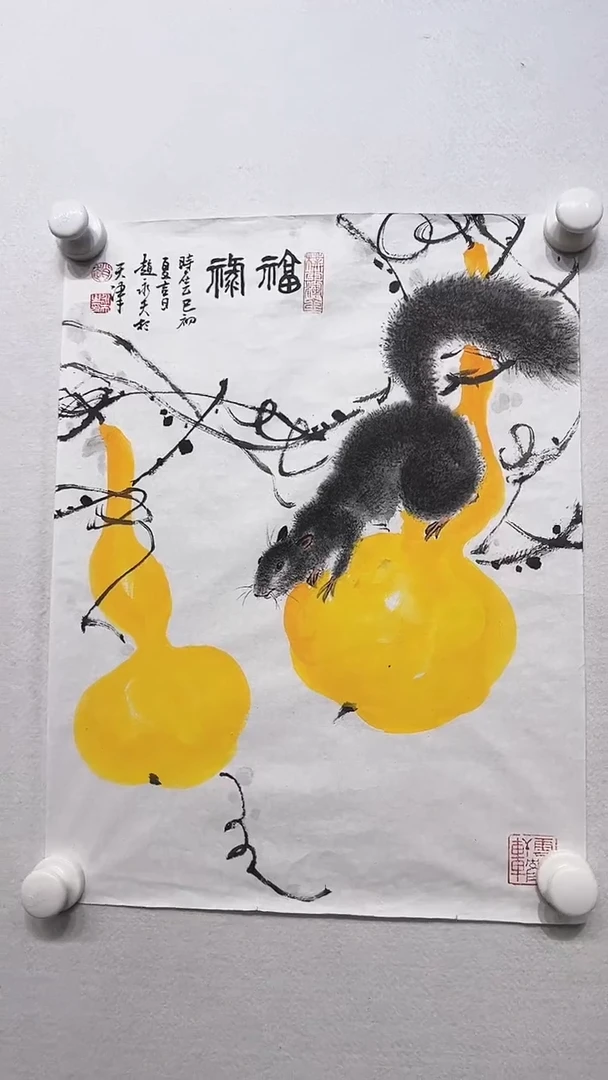 福祿
時在乙巳初
夏吉日
趙永夫於
天津